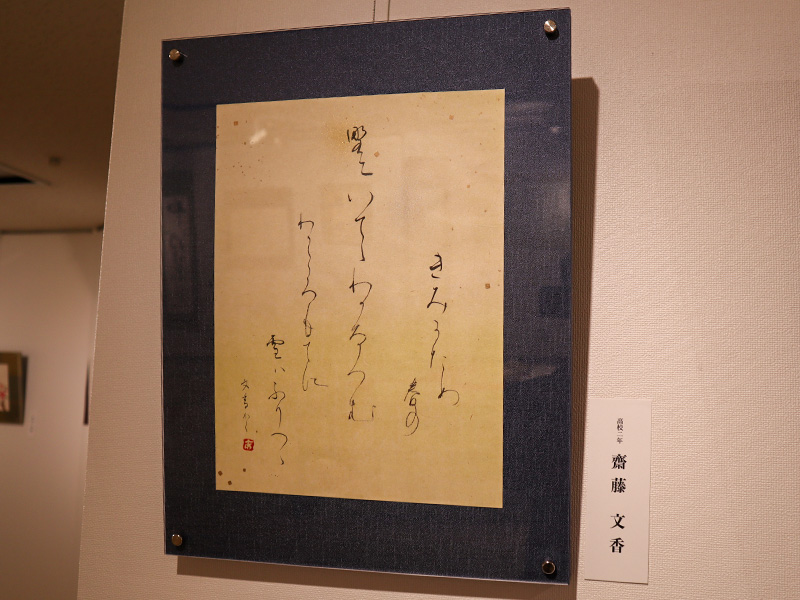 きみかため
春の
野にいてゝわかなつむ
わかころもてに
雪はふりつゝ
文香かく
高校二年
齋藤 文香